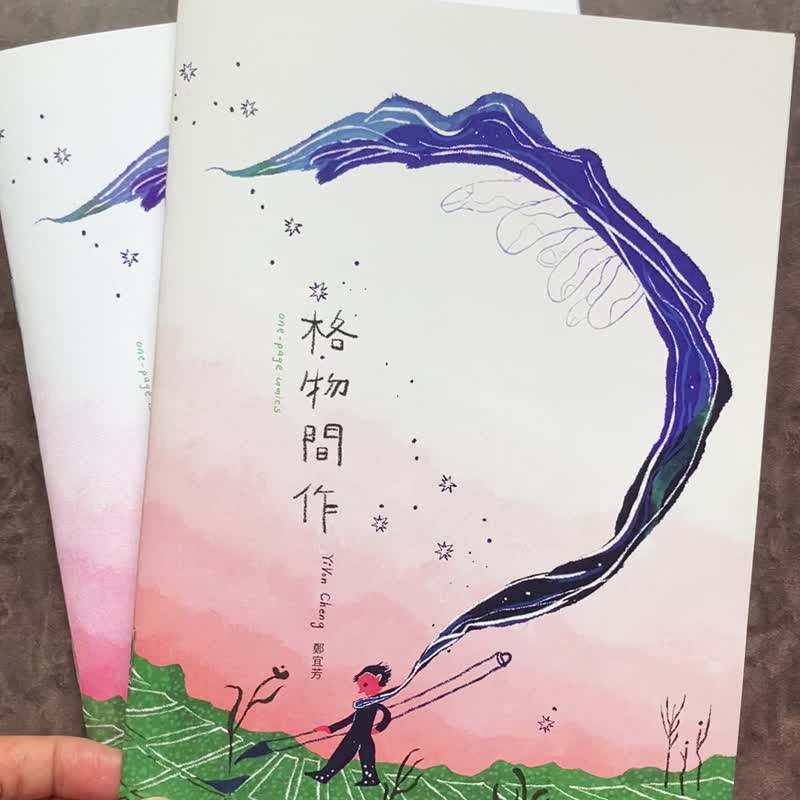 格物間作
one-page comics
YiVon Cheng
鄭宜芳
one-page